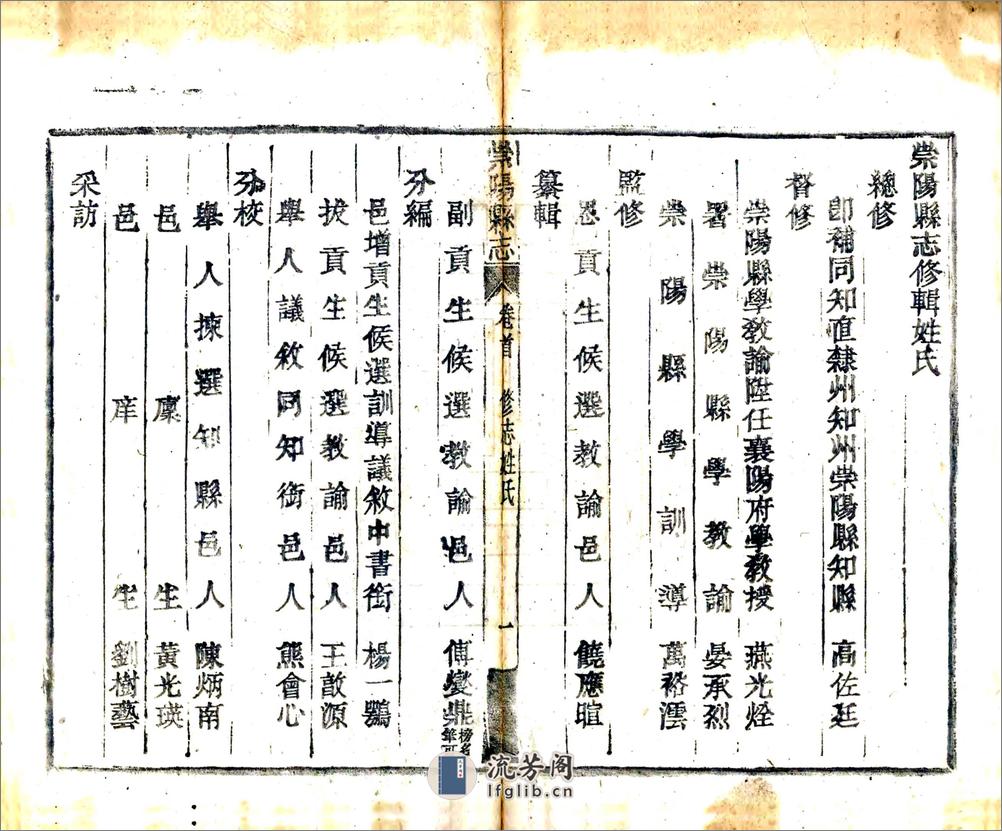 崇陽縣志修輯姓氏
總修
卽補同知直隸州知州崇陽縣知縣 高佐廷
督修
崇陽縣學敎諭陞任襄陽府學敎授 燕光烇
署崇陽縣學敎諭 晏承烈
崇陽縣學訓導 萬裕澐
監修
恩貢生候選敎諭邑人 饒應暄
纂輯
崇陽縣志 卷首 修志姓氏 一
副貢生候選敎諭邑人 傅燮鼎 榜名
分編
邑增貢生候選訓導議敘中書銜 楊一鶚
拔貢生候選敎諭邑人 王敳源
舉人議敘同知銜邑人 熊會心
分校
舉人揀選知縣邑人 陳炳南
邑廩生 黃光瑛
邑庠生 劉樹藝
采訪
流芳阁
lfglib.cn